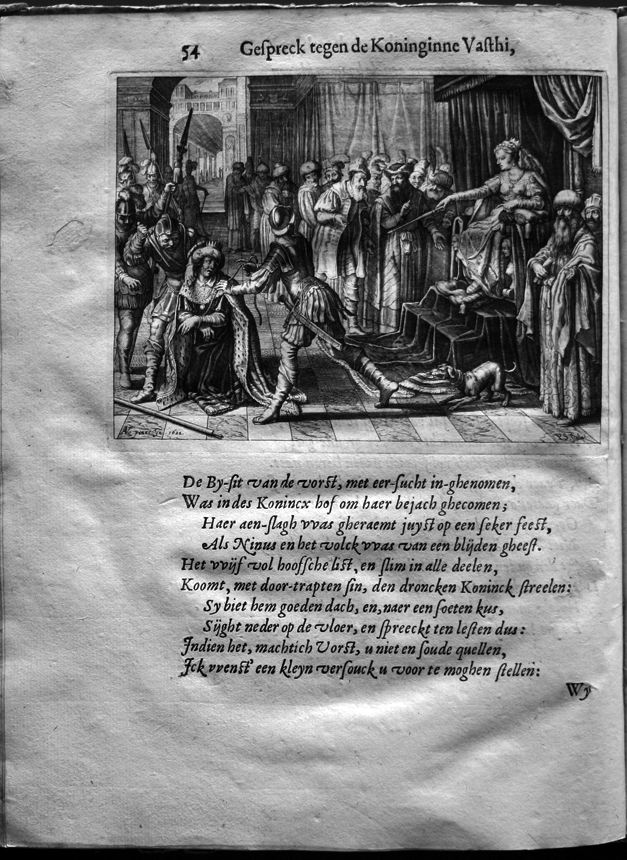 54 Geſpreck tegen de Koninginne Vaſthi,
1622
De By-ſit van de vorſt, met eer-ſucht in-ghenomen,
Was in des Konincx hof om haer bejach ghecomen;
Haer aen-ſlagh vvas gheraemt juyſt op een ſeker feeſt,
Als Ninus en het volck vvas van een blijden gheeſt.
Het vvijf vol hoofſche liſt, en ſlim in alle deelen,
Koomt, met door-trapten ſin, den droncken Koninck ſtreelen:
Sy biet hem goeden dach, en, naer een ſoeten kus,
Sijght neder op de vloer, en ſpreeckt ten leſten dus:
Indien het, machtich Vorſt, u niet en ſoude quellen,
Ick vvenſt' een kleyn verſouck u voor te moghen ſtellen:
Wy